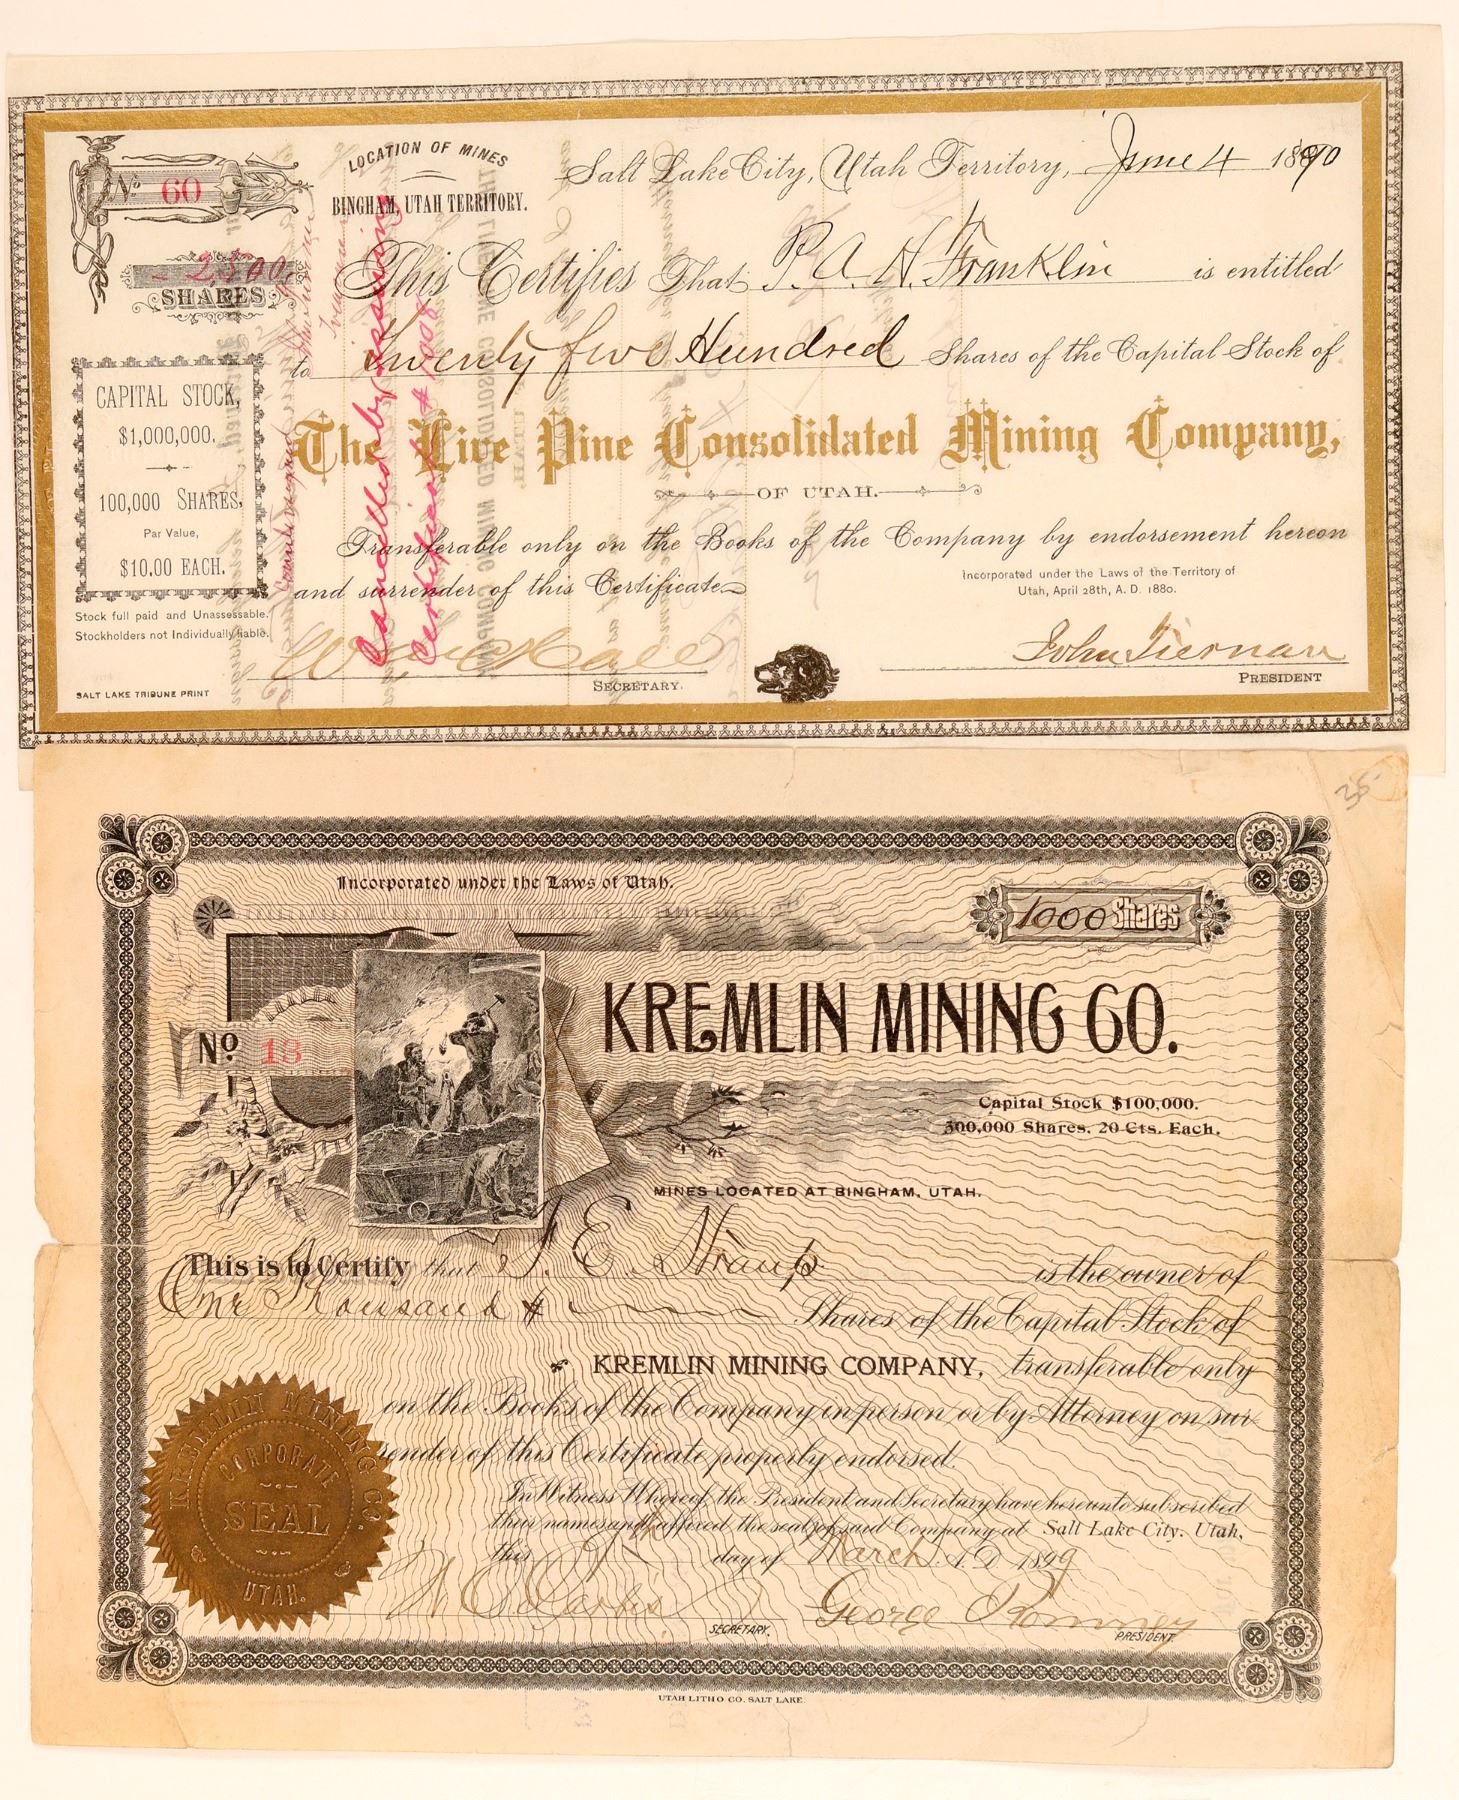 No 60
LOCATION OF MINES
BINGHAM, UTAH TERRITORY.
Salt Lake City, Utah Territory, June 4 1890
- 2500 -
SHARES
This Certifies That P. A. H. Franklin is entitled
to Twenty five Hundred Shares of the Capital Stock of
The Live Pine Consolidated Mining Company,
OF UTAH.
CAPITAL STOCK,
$1,000,000.
100,000 SHARES,
Par Value,
$10.00 EACH.
Stock full paid and Unassessable.
Stockholders not Individually liable.
Transferable only on the Books of the Company by endorsement hereon
and surrender of this Certificate
Incorporated under the Laws of the Territory of
Utah, April 28th, A. D. 1880.
Cancelled by issuing
Certificate #
Countersigned
SECRETARY.
John Tiernan
PRESIDENT
SALT LAKE TRIBUNE PRINT
35-
Incorporated under the Laws of Utah.
1000 Shares
KREMLIN MINING CO.
No 13
Capital Stock $100,000.
500,000 Shares. 20 Cts. Each.
MINES LOCATED AT BINGHAM, UTAH.
This is to Certify that J. E. Straup is the owner of
One Thousand Shares of the Capital Stock of
KREMLIN MINING COMPANY, transferable only
on the Books of the Company in person or by Attorney on sur-
render of this Certificate properly endorsed.
In Witness Whereof, the President and Secretary have hereunto subscribed
their names and affixed the seal of said Company at Salt Lake City, Utah,
this 9th day of March A. D. 1899
KREMLIN MINING CO.
CORPORATE
SEAL
UTAH.
SECRETARY.
George Romney
PRESIDENT
UTAH LITHO CO. SALT LAKE.